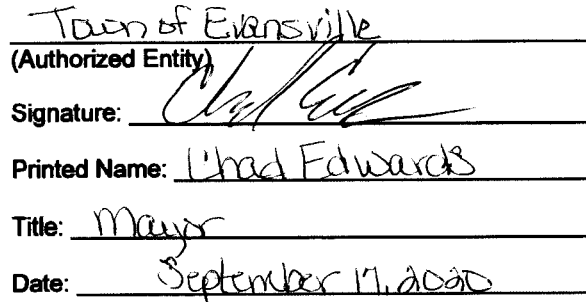 Town of Evansville
(Authorized Entity)
Signature: Chad Edwards
Printed Name: Chad Edwards
Title: Mayor
Date: September 17, 2020